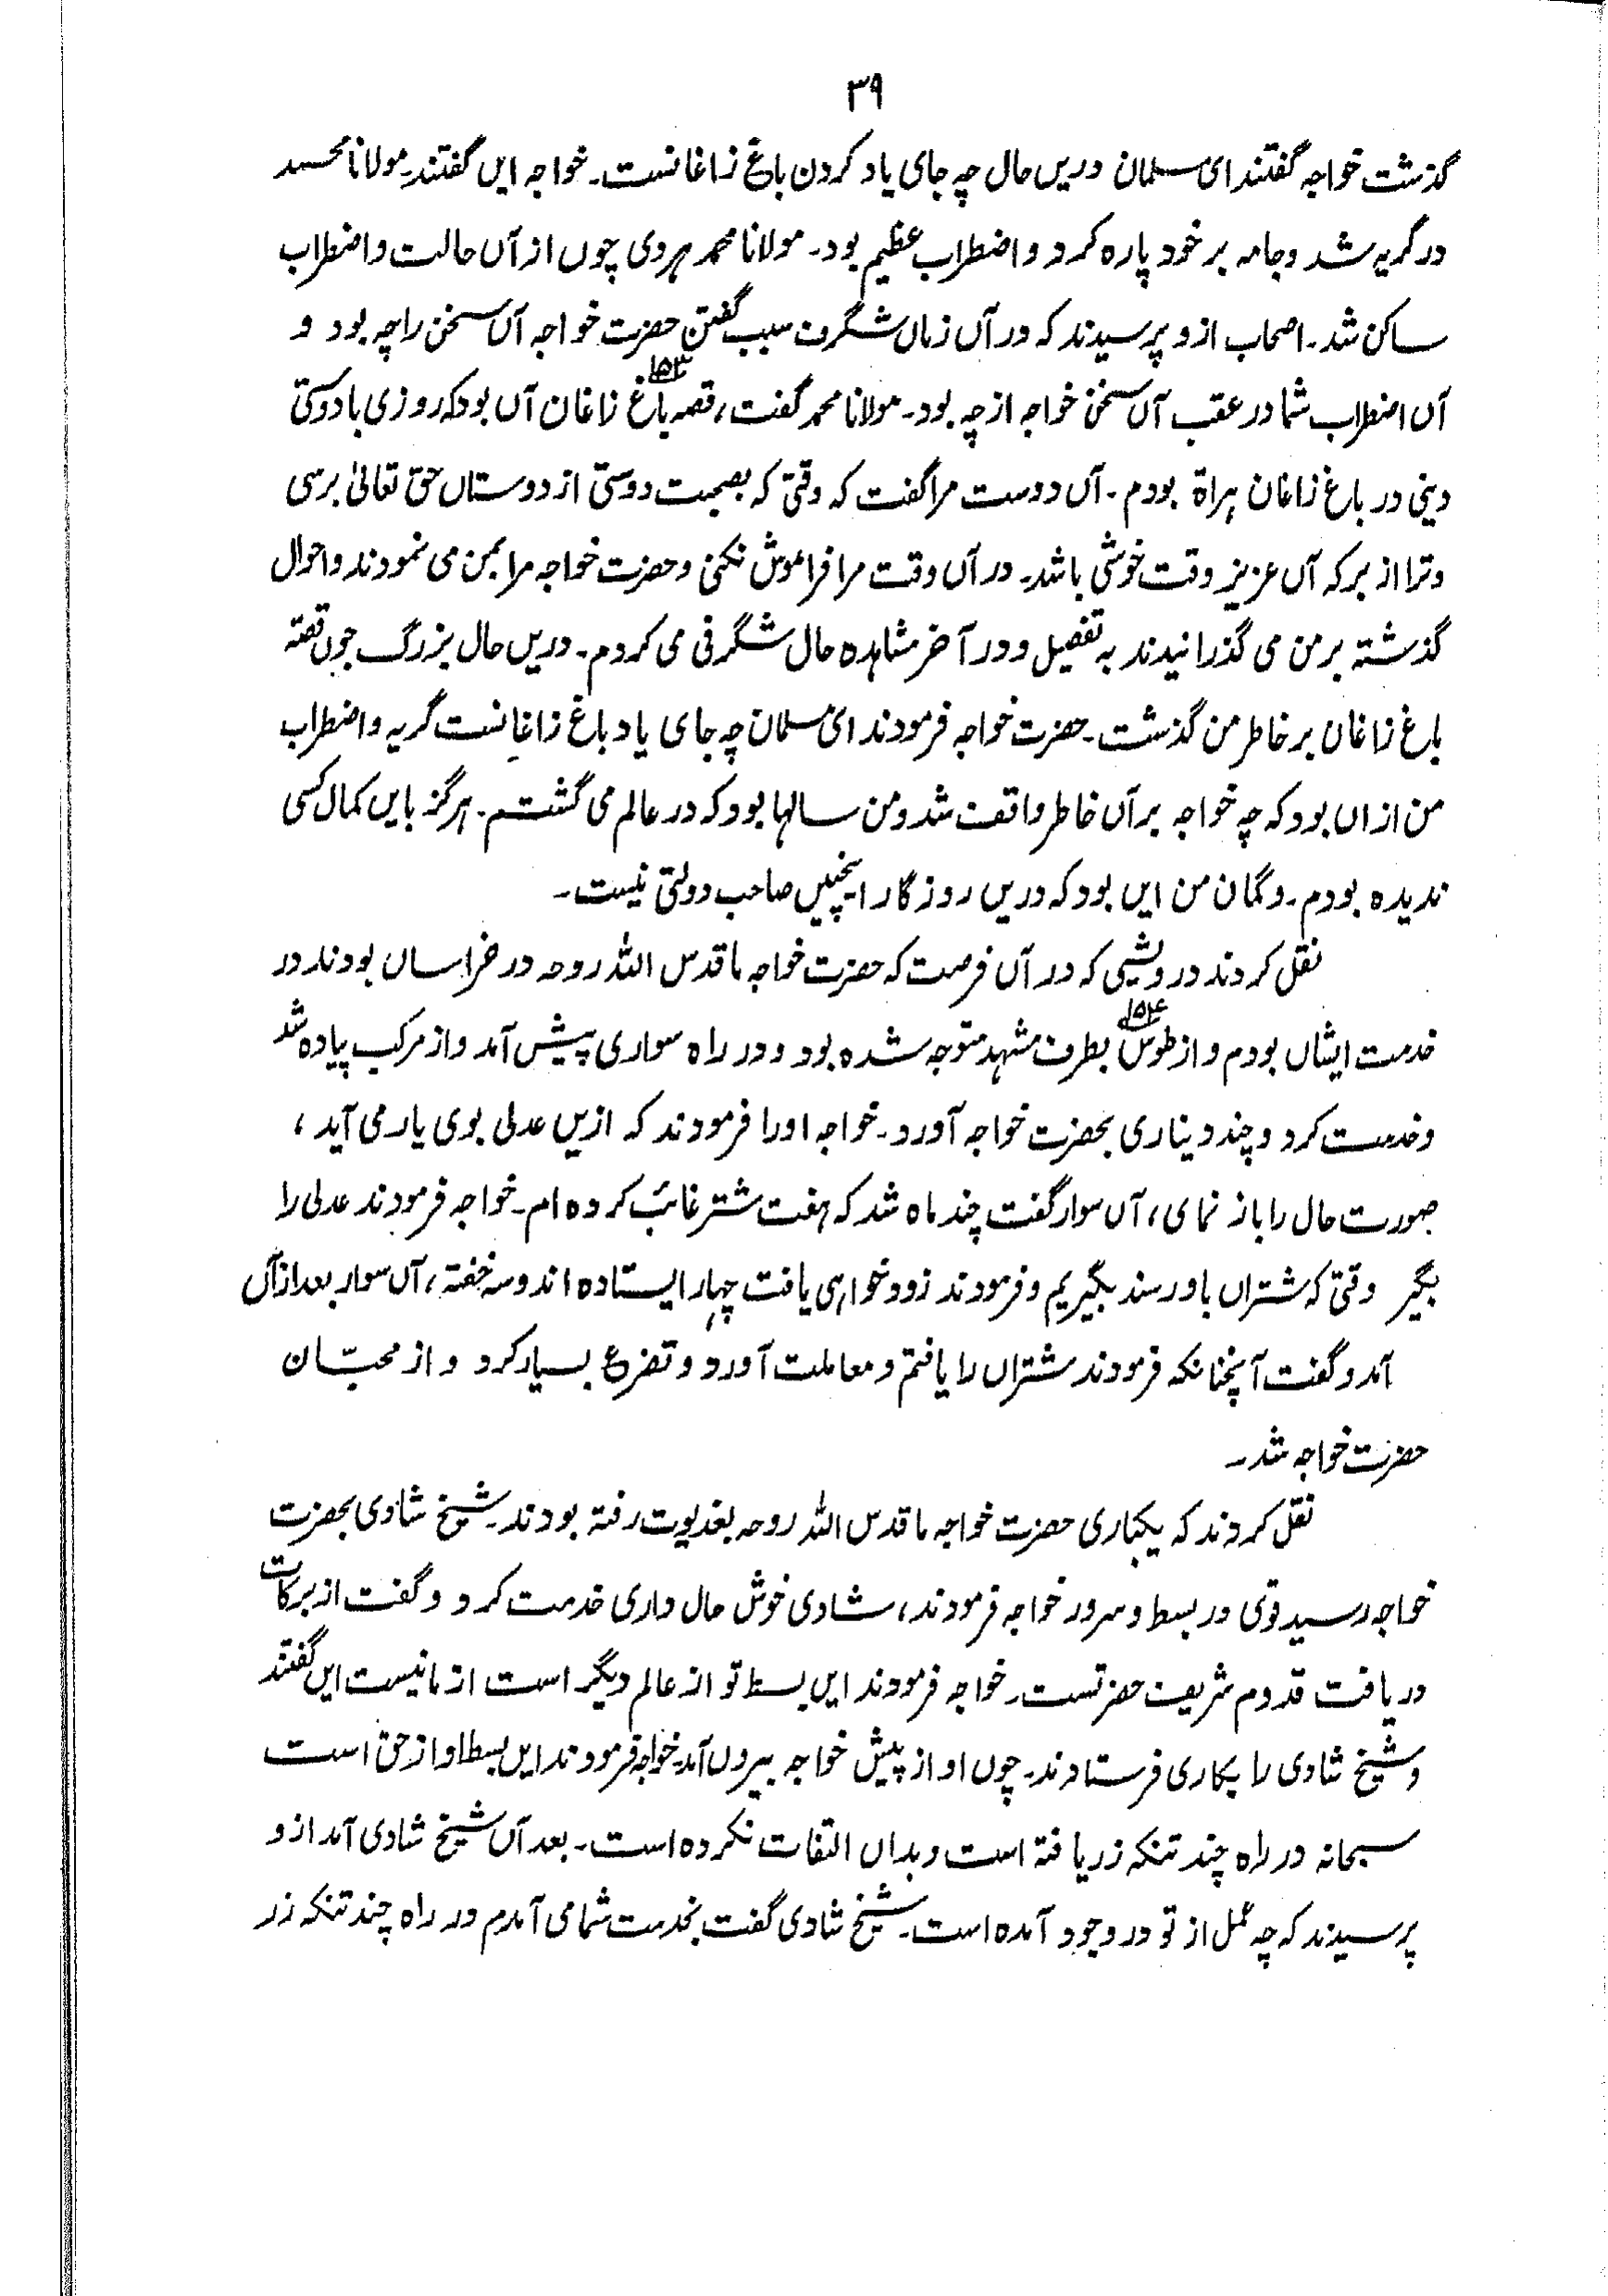 ۳۹
گذشت خواجه گفتند ای مسلمان دریں حال چه جای یاد کردن باغ زاغانست۔ خواجه ایں گفتند۔ مولانا محمد
در گریه شد وجامه بر خود پاره کرد و اضطراب عظیم بود۔ مولانا محمد هروی چوں از آں حالت و اضطراب
ساکن شد۔ اصحاب از و پرسیدند که در آں زماں شگرف سبب گفتن حضرت خواجه آں سخن را چه بود و
آں اضطراب شما در عقب آں سخن خواجه از چه بود۔ مولانا محمد گفت، قصه باغ ۱۵۳ زاغان آں بود که روزی با دوستی
دینی در باغ زاغان هراة بودم۔ آں دوست مرا گفت که وقتی که بصحبت دوستی از دوستاں حق تعالیٰ برسی
وترا از برکه آں عزیز وقت خوشی باشد۔ در آں وقت مرا فراموش نکنی و حضرت خواجه مرا بمن می نمودند و احوال
گذشته بر من می گذرانیدند به تفصیل و در آخر مشاهده حال شگرفی می کردم۔ دریں حال بزرگ چوں قصّهٔ
باغ زاغان بر خاطر من گذشت۔ حضرت خواجه فرمودند ای مسلمان چه جای یاد باغ زاغانست گریه و اضطراب
من ازاں بود که چه خواجه بر آں خاطر واقف شد ومن سالها بود که در عالم می گشتم۔ هرگز بایں کمال کسی
ندیده بودم۔ وگمان من ایں بود که دریں روزگار اینچنیں صاحب دولتی نیست۔
نقل کردند درویشی که در آں فرصت که حضرت خواجه ما قدس الله روحه در خراساں بودند در
خدمت ایشاں بودم و از طوس ۱۵۴ بطرف مشهد متوجه شده بود و در راه سواری پیش آمد و از مرکب پیاده شد
وخدمت کرد و چند دیناری بحضرت خواجه آورد۔ خواجه اورا فرمودند که ازیں عدلی بوی یار می آید،
صورت حال را باز نمای، آں سوار گفت چند ماه شد که هفت شتر غائب کرده ام۔ خواجه فرمودند عدلی را
بگیر وقتی که شتراں باو رسند بگیریم و فرمودند زود خواهی یافت چهار ایستاده اند وسه خفته، آں سوار بعد ازآں
آمد و گفت آنچنانکه فرمودند شتراں را یافتم و معاملت آورد و تضرع بسیار کرد و از محبّان
حضرت خواجه شد۔
نقل کردند که یکباری حضرت خواجه ما قدس الله روحه بغدیوت رفته بودند۔ شیخ شادی بحضرت
خواجه رسید قوی در بسط و سرور خواجه فرمودند، شادی خوش حال داری خدمت کرد و گفت از برکات
دریافت قدوم شریف حضرتست۔ خواجه فرمودند ایں بسط تو از عالم دیگر است از ما نیست ایں گفتند
و شیخ شادی را بکاری فرستادند۔ چوں او از پیش خواجه بیروں آمد۔ خواجه فرمودند ایں بسط او از حق است
سبحانه در راه چند تنکه زر یافته است و بداں التفات نکرده است۔ بعد آں شیخ شادی آمد از و
پرسیدند که چه عمل از تو در وجود آمده است۔ شیخ شادی گفت بخدمت شما می آمدم در راه چند تنکه زر